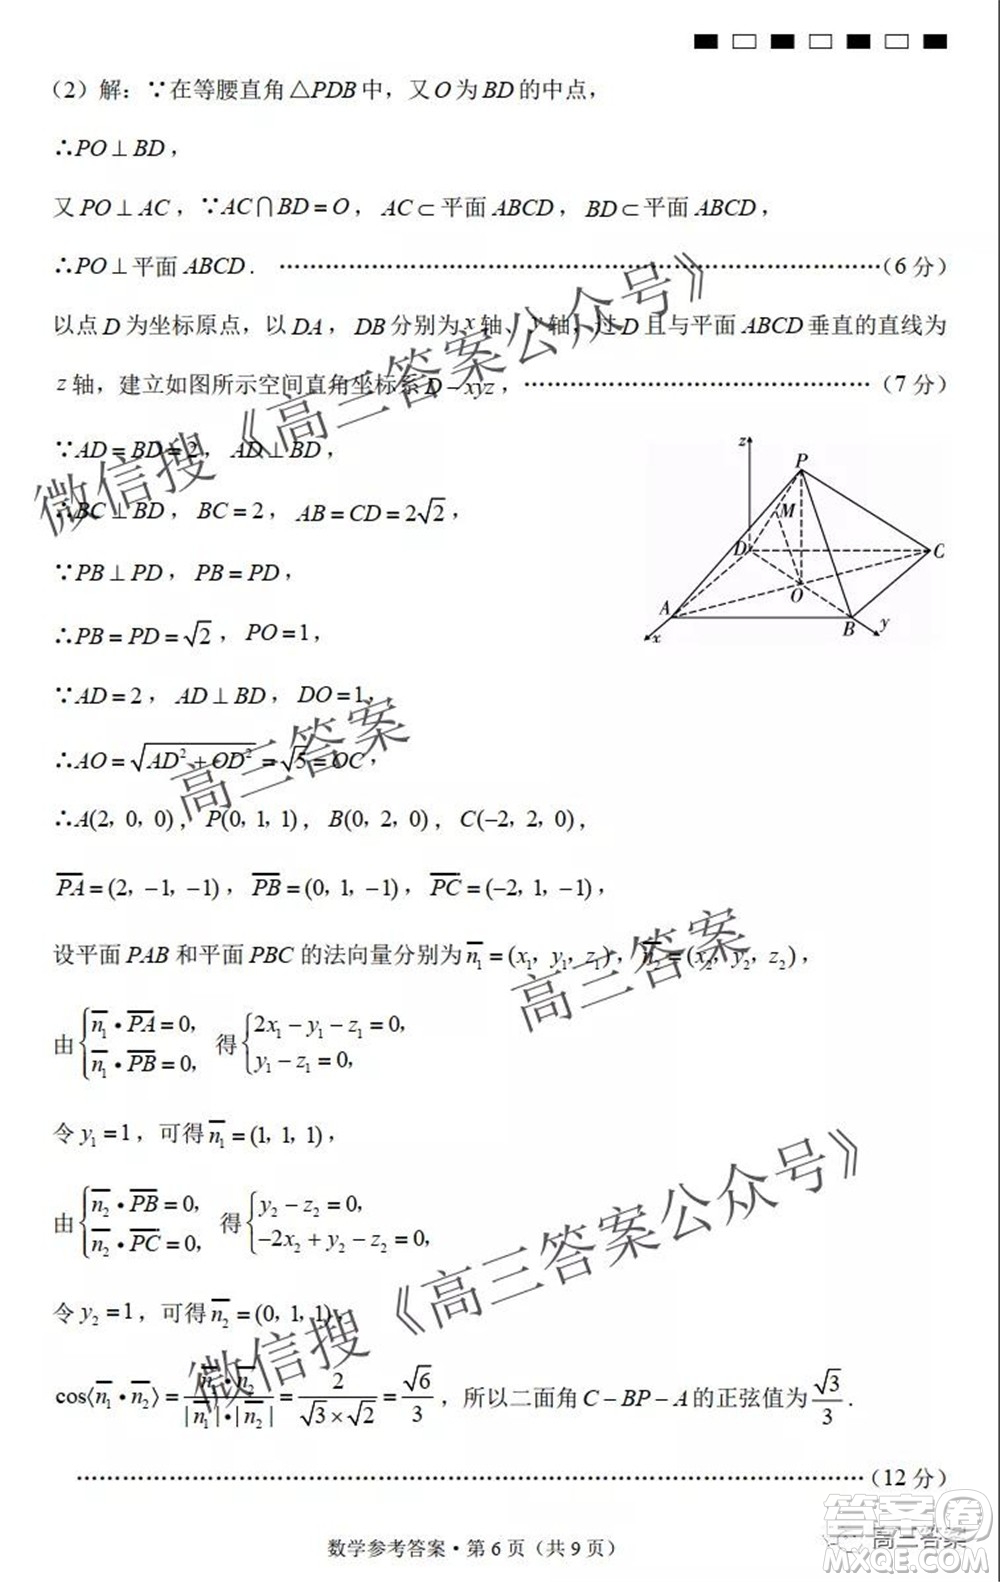 (2)解：∵在等腰直角△PDB中，又O为BD的中点，
∴PO⊥BD，
又PO⊥AC，∵AC∩BD=O，AC⊂平面ABCD，BD⊂平面ABCD，
∴PO⊥平面ABCD．……………………………………………………(6分)
以点D为坐标原点，以DA，DB分别为x轴、y轴，过D且与平面ABCD垂直的直线为
z轴，建立如图所示空间直角坐标系D-xyz，………………………………(7分)
∵AD=BD=2，AD⊥BD，
∴BC⊥BD，BC=2，AB=CD=2√2，
∵PB⊥PD，PB=PD，
∴PB=PD=√2，PO=1，
∵AD=2，AD⊥BD，DO=1，
∴AO=√(AD²+OD²)=√5=OC，
z
P
M
D
C
O
A
B
x
y
∴A(2，0，0)，P(0，1，1)，B(0，2，0)，C(-2，2，0)，
PA=(2，-1，-1)，PB=(0，1，-1)，PC=(-2，1，-1)，
设平面PAB和平面PBC的法向量分别为n₁=(x₁，y₁，z₁)，n₂=(x₂，y₂，z₂)，
由{n₁•PA=0，n₁•PB=0，得{2x₁-y₁-z₁=0，y₁-z₁=0，
令y₁=1，可得n₁=(1，1，1)，
由{n₂•PB=0，n₂•PC=0，得{y₂-z₂=0，-2x₂+y₂-z₂=0，
令y₂=1，可得n₂=(0，1，1)，
cos⟨n₁•n₂⟩=n₁•n₂/|n₁|•|n₂|=2/√3×√2=√6/3，所以二面角C-BP-A的正弦值为√3/3．
……………………………………………………………………(12分)
数学参考答案·第6页（共9页）
微信搜《高三答案公众号》
高三答案
高三答案
微信搜《高三答案公众号》
高三答案
答案圈
MXQE.COM